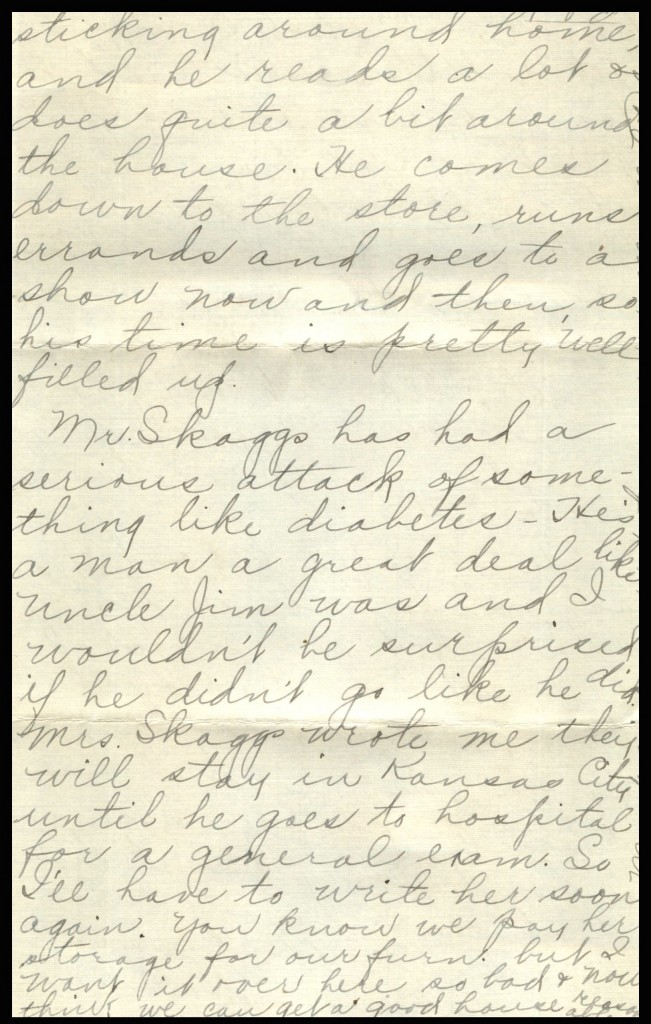 sticking around home,
and he reads a lot &
does quite a bit around
the house. He comes
down to the store, runs
errands and goes to a
show now and then, so
his time is pretty well
filled up.
Mr. Skaggs has had a
serious attack of some-
thing like diabetes - He's
a man a great deal like
Uncle Jim was and I
wouldn't be surprised
if he didn't go like he did.
Mrs. Skaggs wrote me they
will stay in Kansas City
until he goes to hospital
for a general exam. So
I'll have to write her soon
again. You know we pay her
storage for our furn. but I
want it over here so bad & now
think we can get a good house